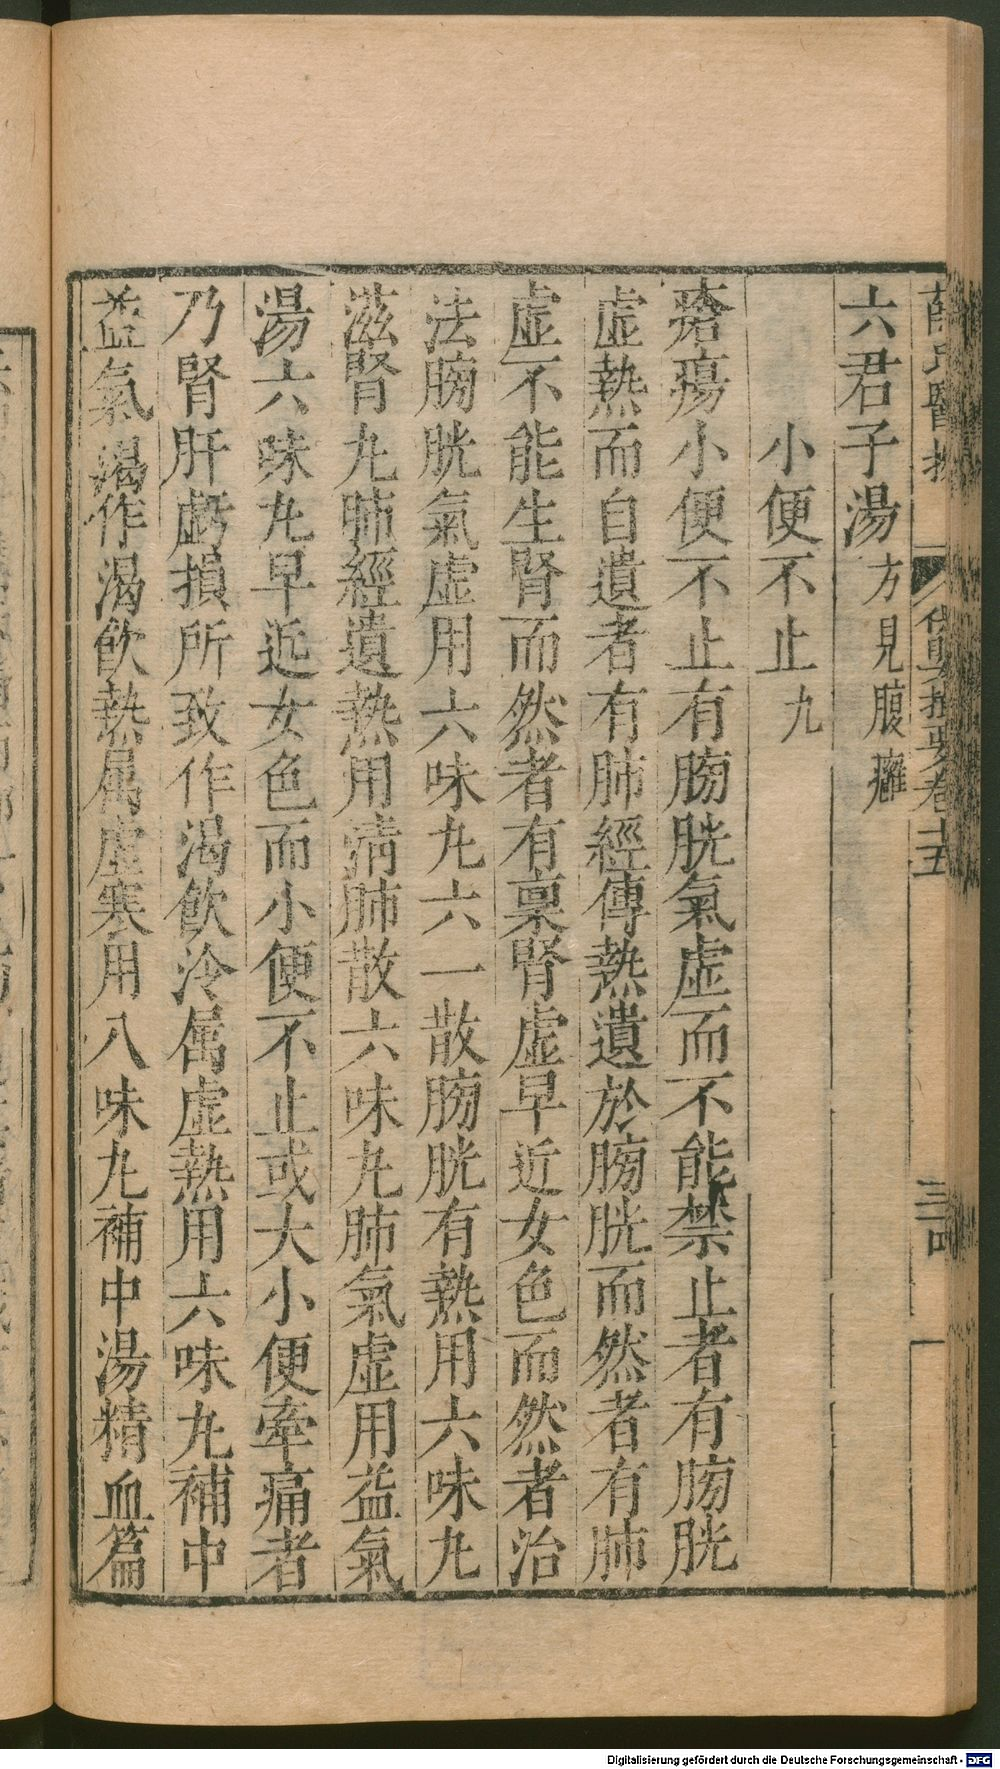 薛氏醫按
保嬰撮要卷十五
六君子湯方見腹癰
小便不止九
瘡瘍小便不止有膀胱氣虛而不能禁止者有膀胱
虛熱而自遺者有肺經傳熱遺於膀胱而然者有肺
虛不能生腎而然者有稟腎虛早近女色而然者治
法膀胱氣虛用六味丸六一散膀胱有熱用六味丸
滋腎丸肺經遺熱用清肺散六味丸肺氣虛用益氣
湯六味丸早近女色而小便不止或大小便牽痛者
乃腎肝虧損所致作渴飲冷属虛熱用六味丸補中
益氣湯作渴飲熱属虛寒用八味丸補中湯精血篇
Digitalisierung gefördert durch die Deutsche Forschungsgemeinschaft - DFG